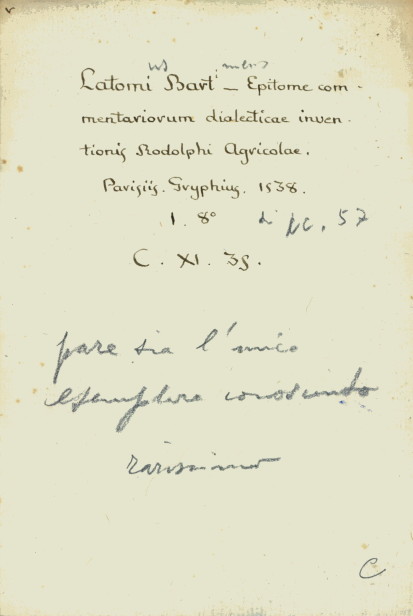 us mbus
Latomi Barti — Epitome com-
mentariorum dialecticae inven-
tionis Rodolphi Agricolae.
Parisiis. Gryphius. 1538.
1. 8° di pc. 57
C. XI. 39.
pare sia l'unico
esemplare conosciuto
rarissimo
C